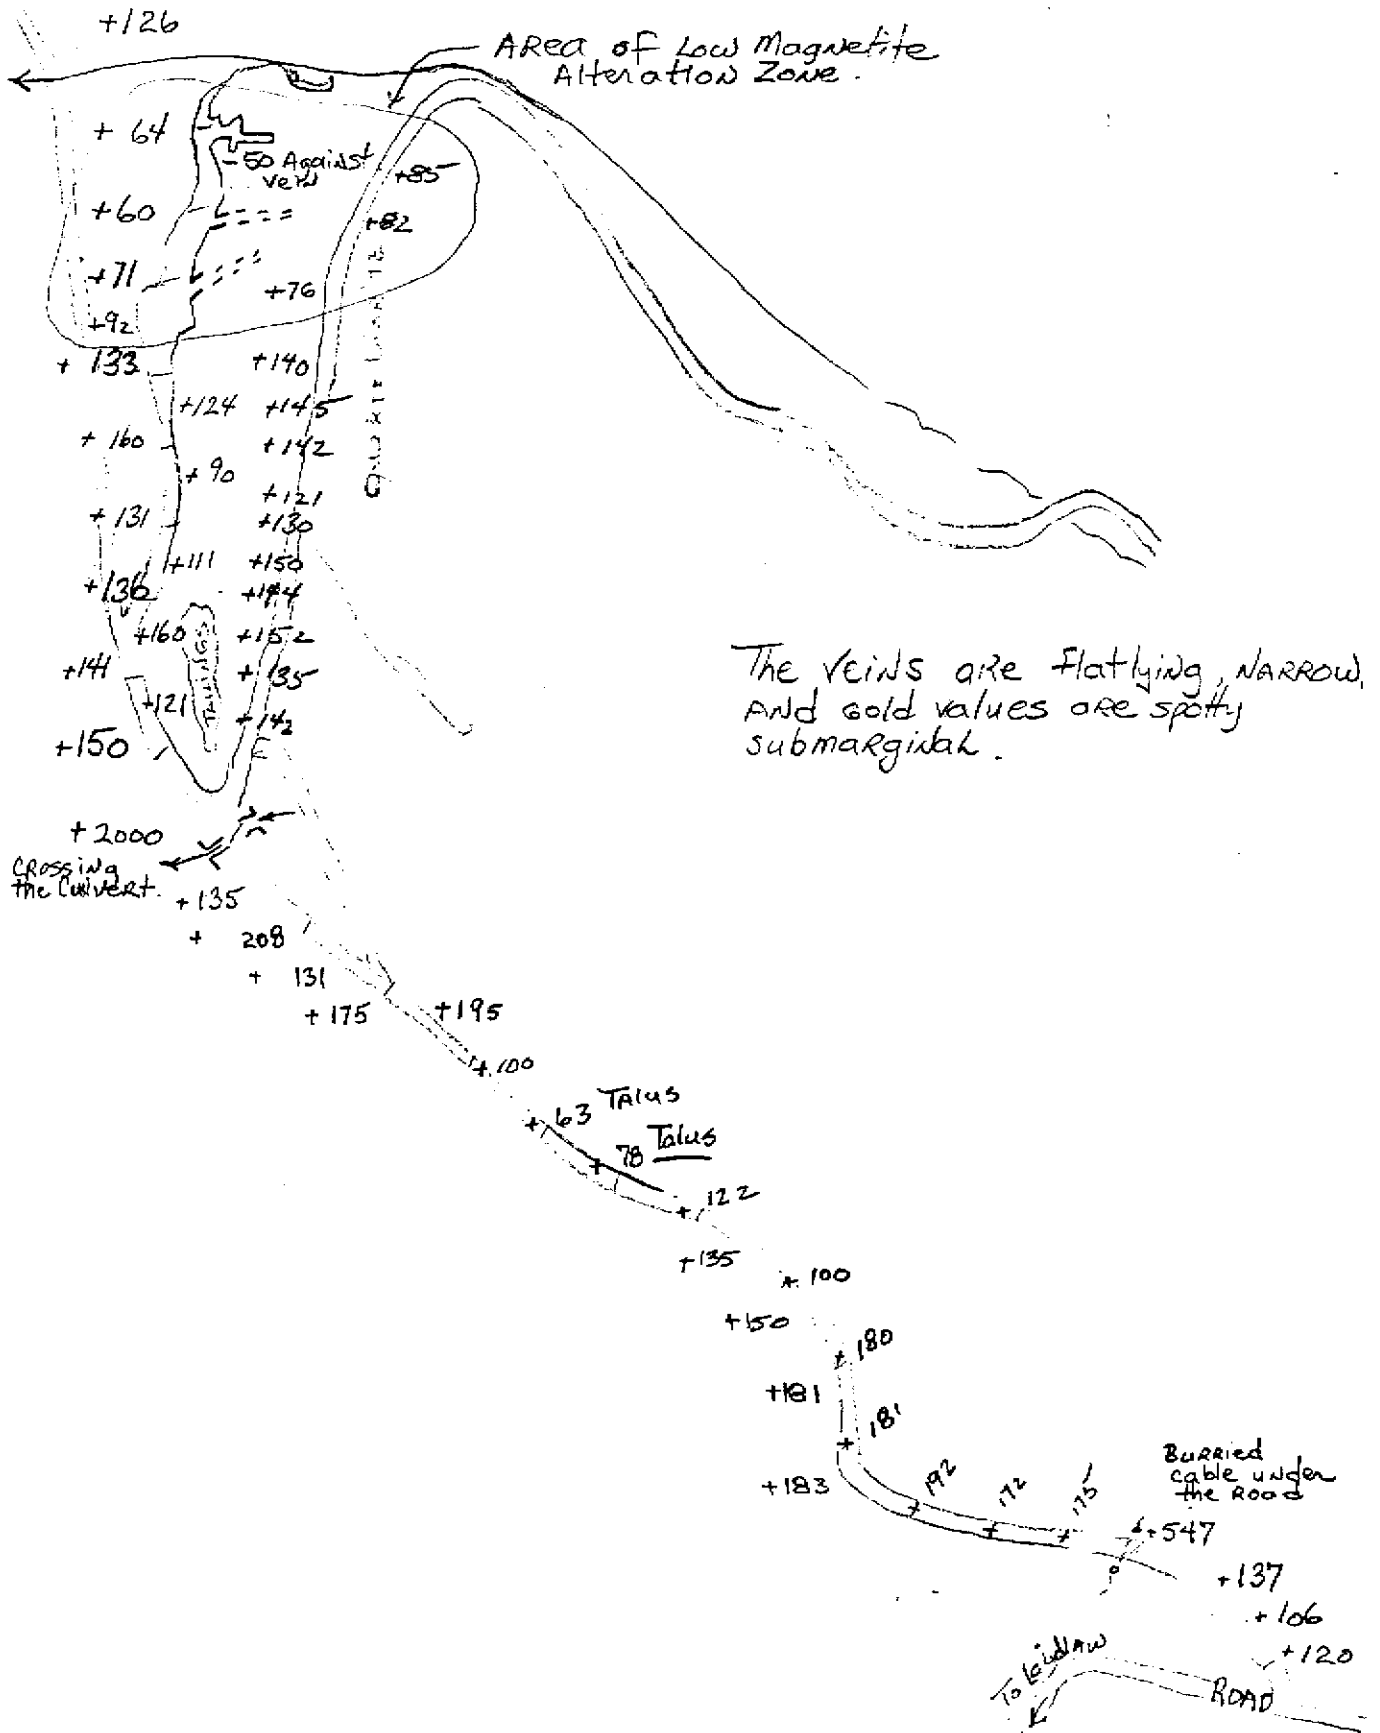 +126
AREA of Low Magnetite
Alteration Zone.
+ 64
-50 Against
vein
+85
+60
+82
+71
+76
+92
+ 133
+140
+124
+145
+ 160
+142
+ 90
+121
+ 131
+130
+111
+150
+136
+144
+160
TAILINGS
+152
+141
+135
+121
+142
+150
The VEINS are flatlying, NARROW,
AND Gold values are spotty
submarginal.
+ 2000
CROSSING
the Culvert.
+ 135
+ 208
+ 131
+ 175
+195
+ 100
+ 63 TALUS
+ 78 Talus
+ 122
+135
+ 100
+150
+ 180
+181
+ 181
+183
+ 192
+ 172
+ 175
BURRIED
cable under
the ROAD
+547
+137
+ 106
+120
To Laidlaw
ROAD